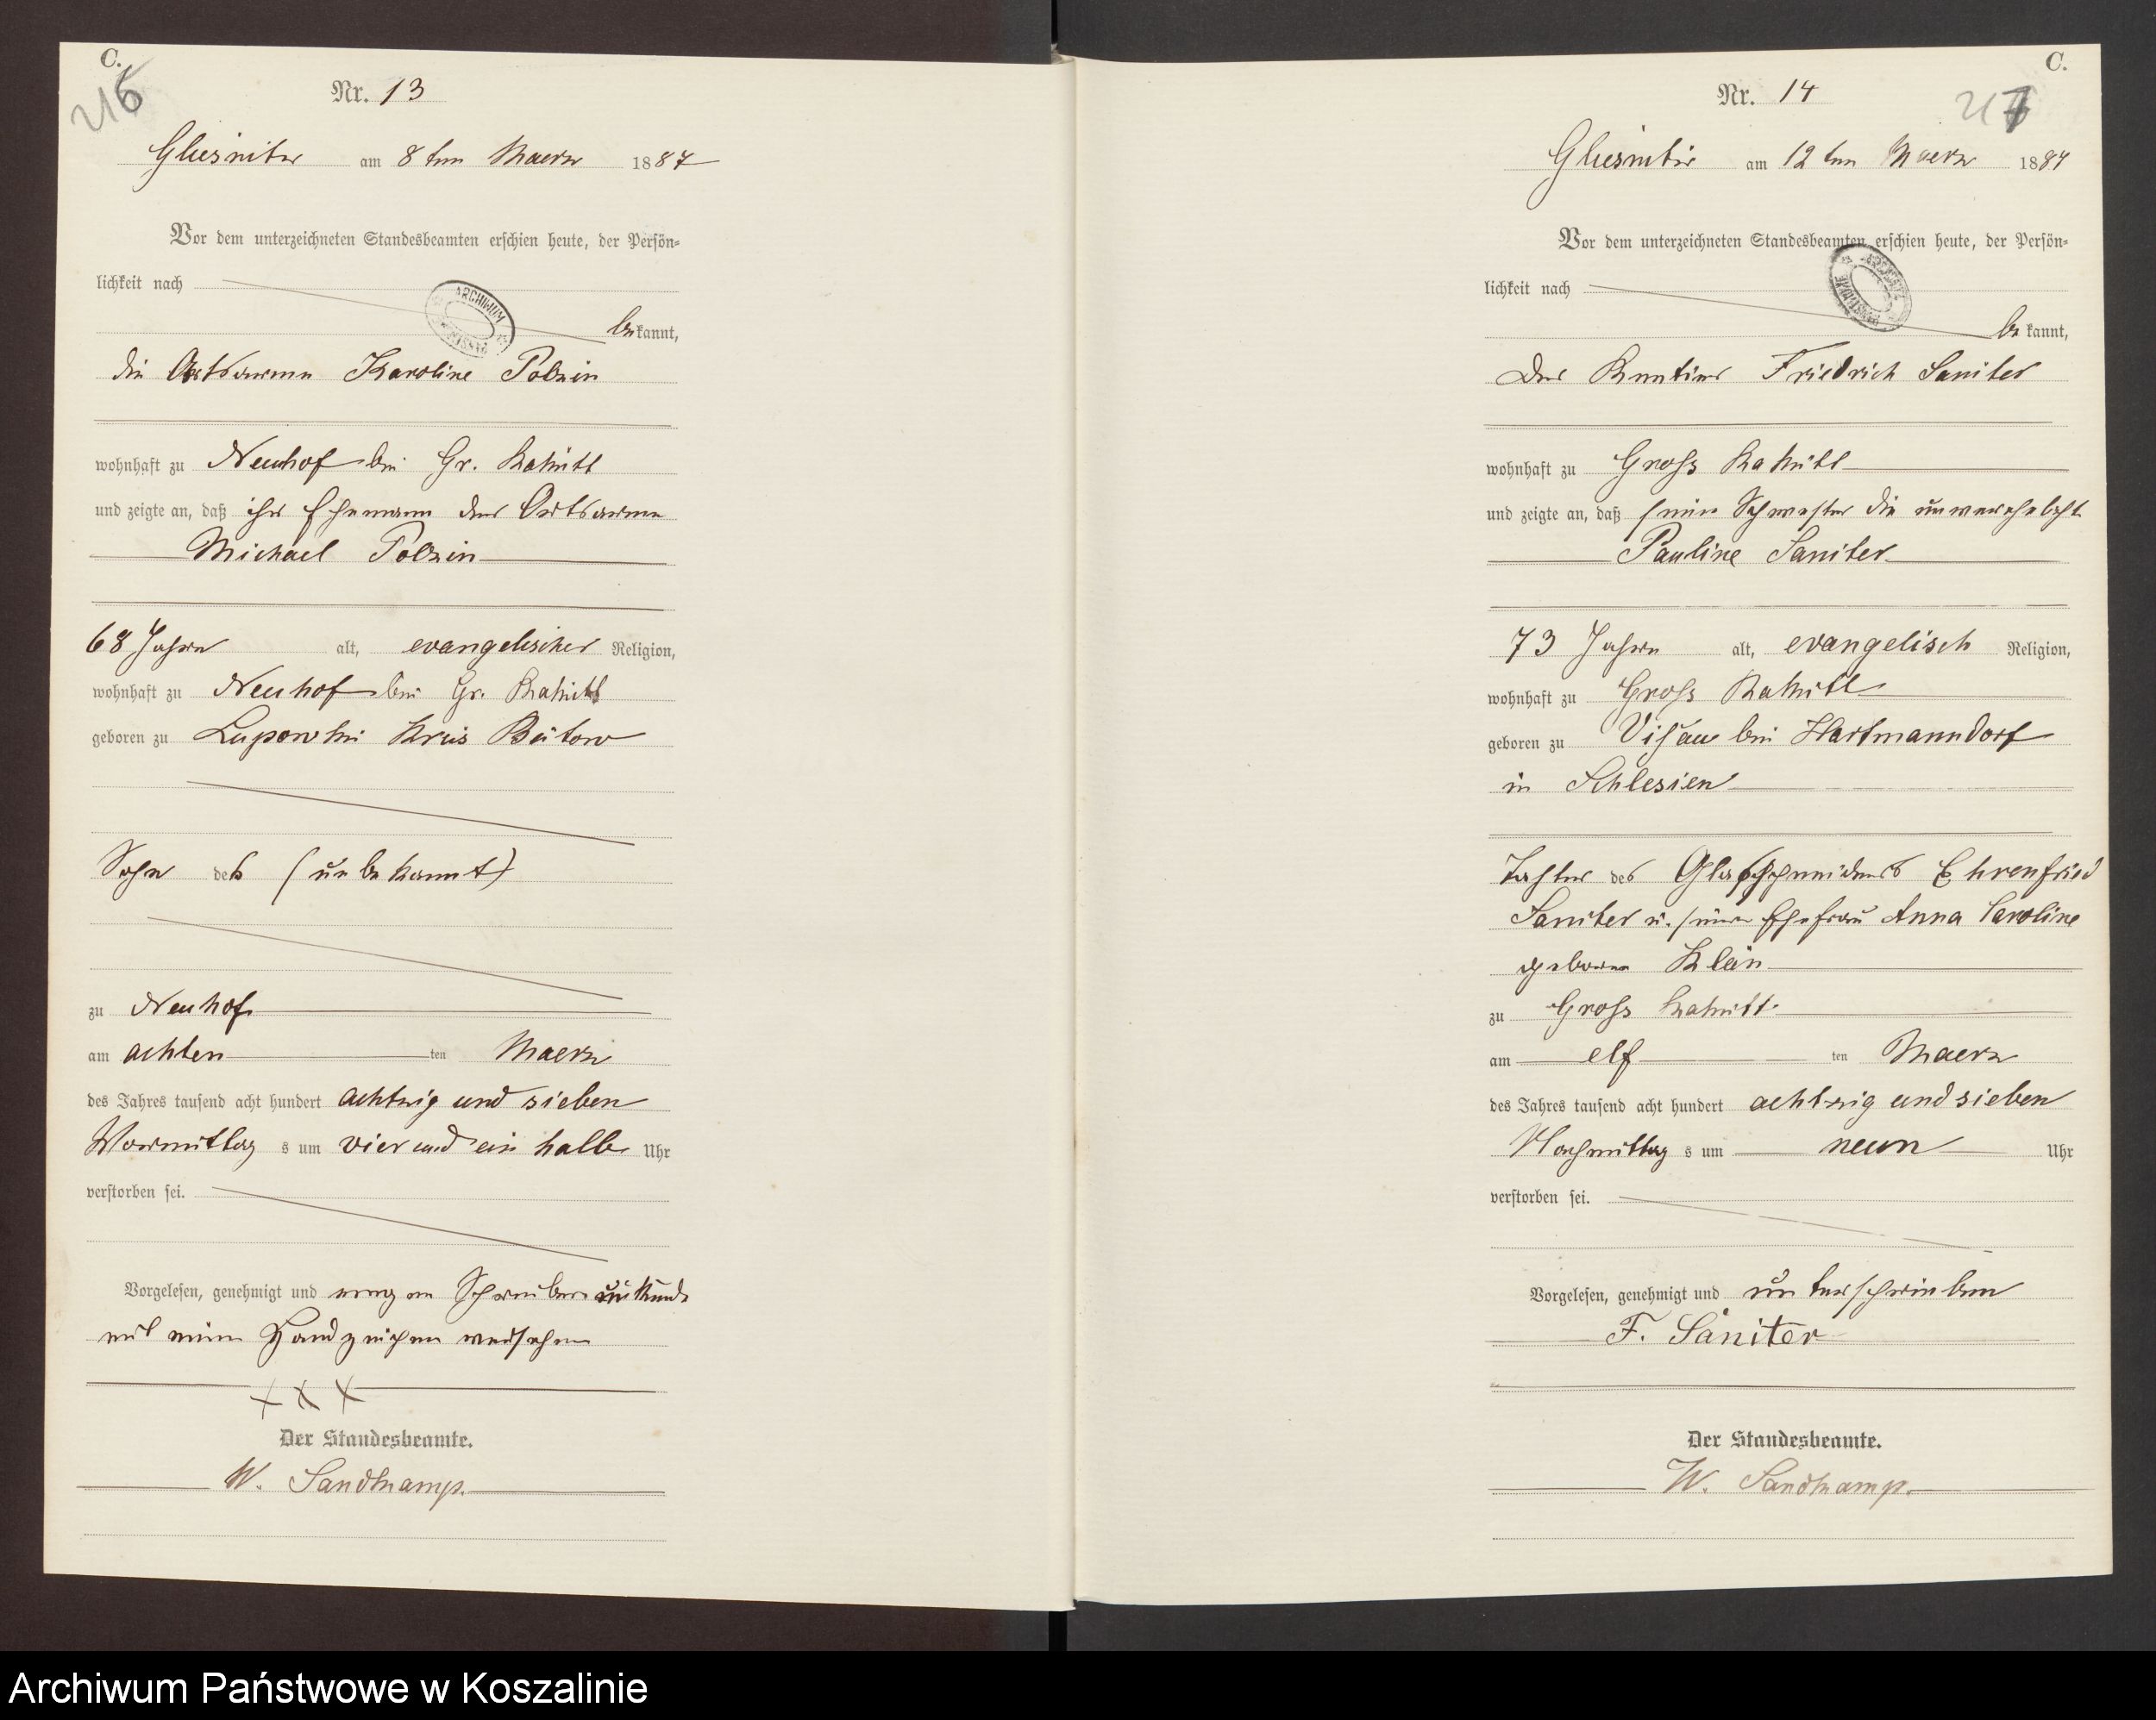 C.
216
Nr. 13
Gliesnitz am 8ten Maerz 1887
Vor dem unterzeichneten Standesbeamten erschien heute, der Persön=
lichkeit nach
ARCHIWUM
bekannt,
die Ortsarme Karoline Polzin
wohnhaft zu Neuhof bei Gr. Rakitt
und zeigte an, daß ihr Ehemann der Ortsarme
Michael Polzin
68 Jahre alt, evangelischer Religion,
wohnhaft zu Neuhof bei Gr. Rakitt
geboren zu Lupowske Kreis Bütow
Sohn des (unbekannt)
zu Neuhof
am achten ten Maerz
des Jahres tausend acht hundert achtzig und sieben
Vormittags um vier und ein halb Uhr
verstorben sei.
Vorgelesen, genehmigt und wegen Schreibensunkunde
mit einem Handzeichen versehen
XXX
Der Standesbeamte.
W. Sandkamp.
C.
217
Nr. 14
Gliesnitz am 12ten Maerz 1887
Vor dem unterzeichneten Standesbeamten erschien heute, der Persön=
lichkeit nach
bekannt,
Der Rentier Friedrich Saniter
wohnhaft zu Gross Rakitt
und zeigte an, daß seine Schwester die unverehelichte
Pauline Saniter
73 Jahre alt, evangelisch Religion,
wohnhaft zu Gross Rakitt
geboren zu Visau bei Hartmanndorf
in Schlesien
Tochter des Glasschneiders Ehrenfried
Saniter u. seiner Ehefrau Anna Caroline
geborene Klein
zu Gross Rakitt
am elf ten Maerz
des Jahres tausend acht hundert achtzig und sieben
Nachmittags um neun Uhr
verstorben sei.
Vorgelesen, genehmigt und unterschrieben
F. Saniter
Der Standesbeamte.
W. Sandkamp.
Archiwum Państwowe w Koszalinie